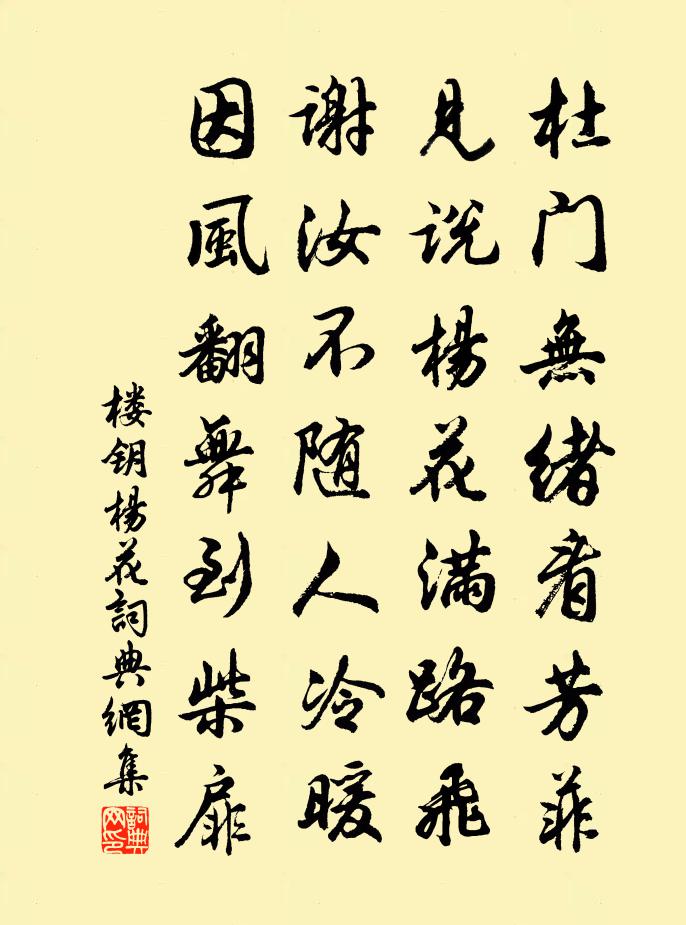 杜门無緒看芳菲
見说楊花满路飛
谢汝不随人冷暖
因風翻舞到柴扉
楼钥楊花詞典網集
詞典
网印